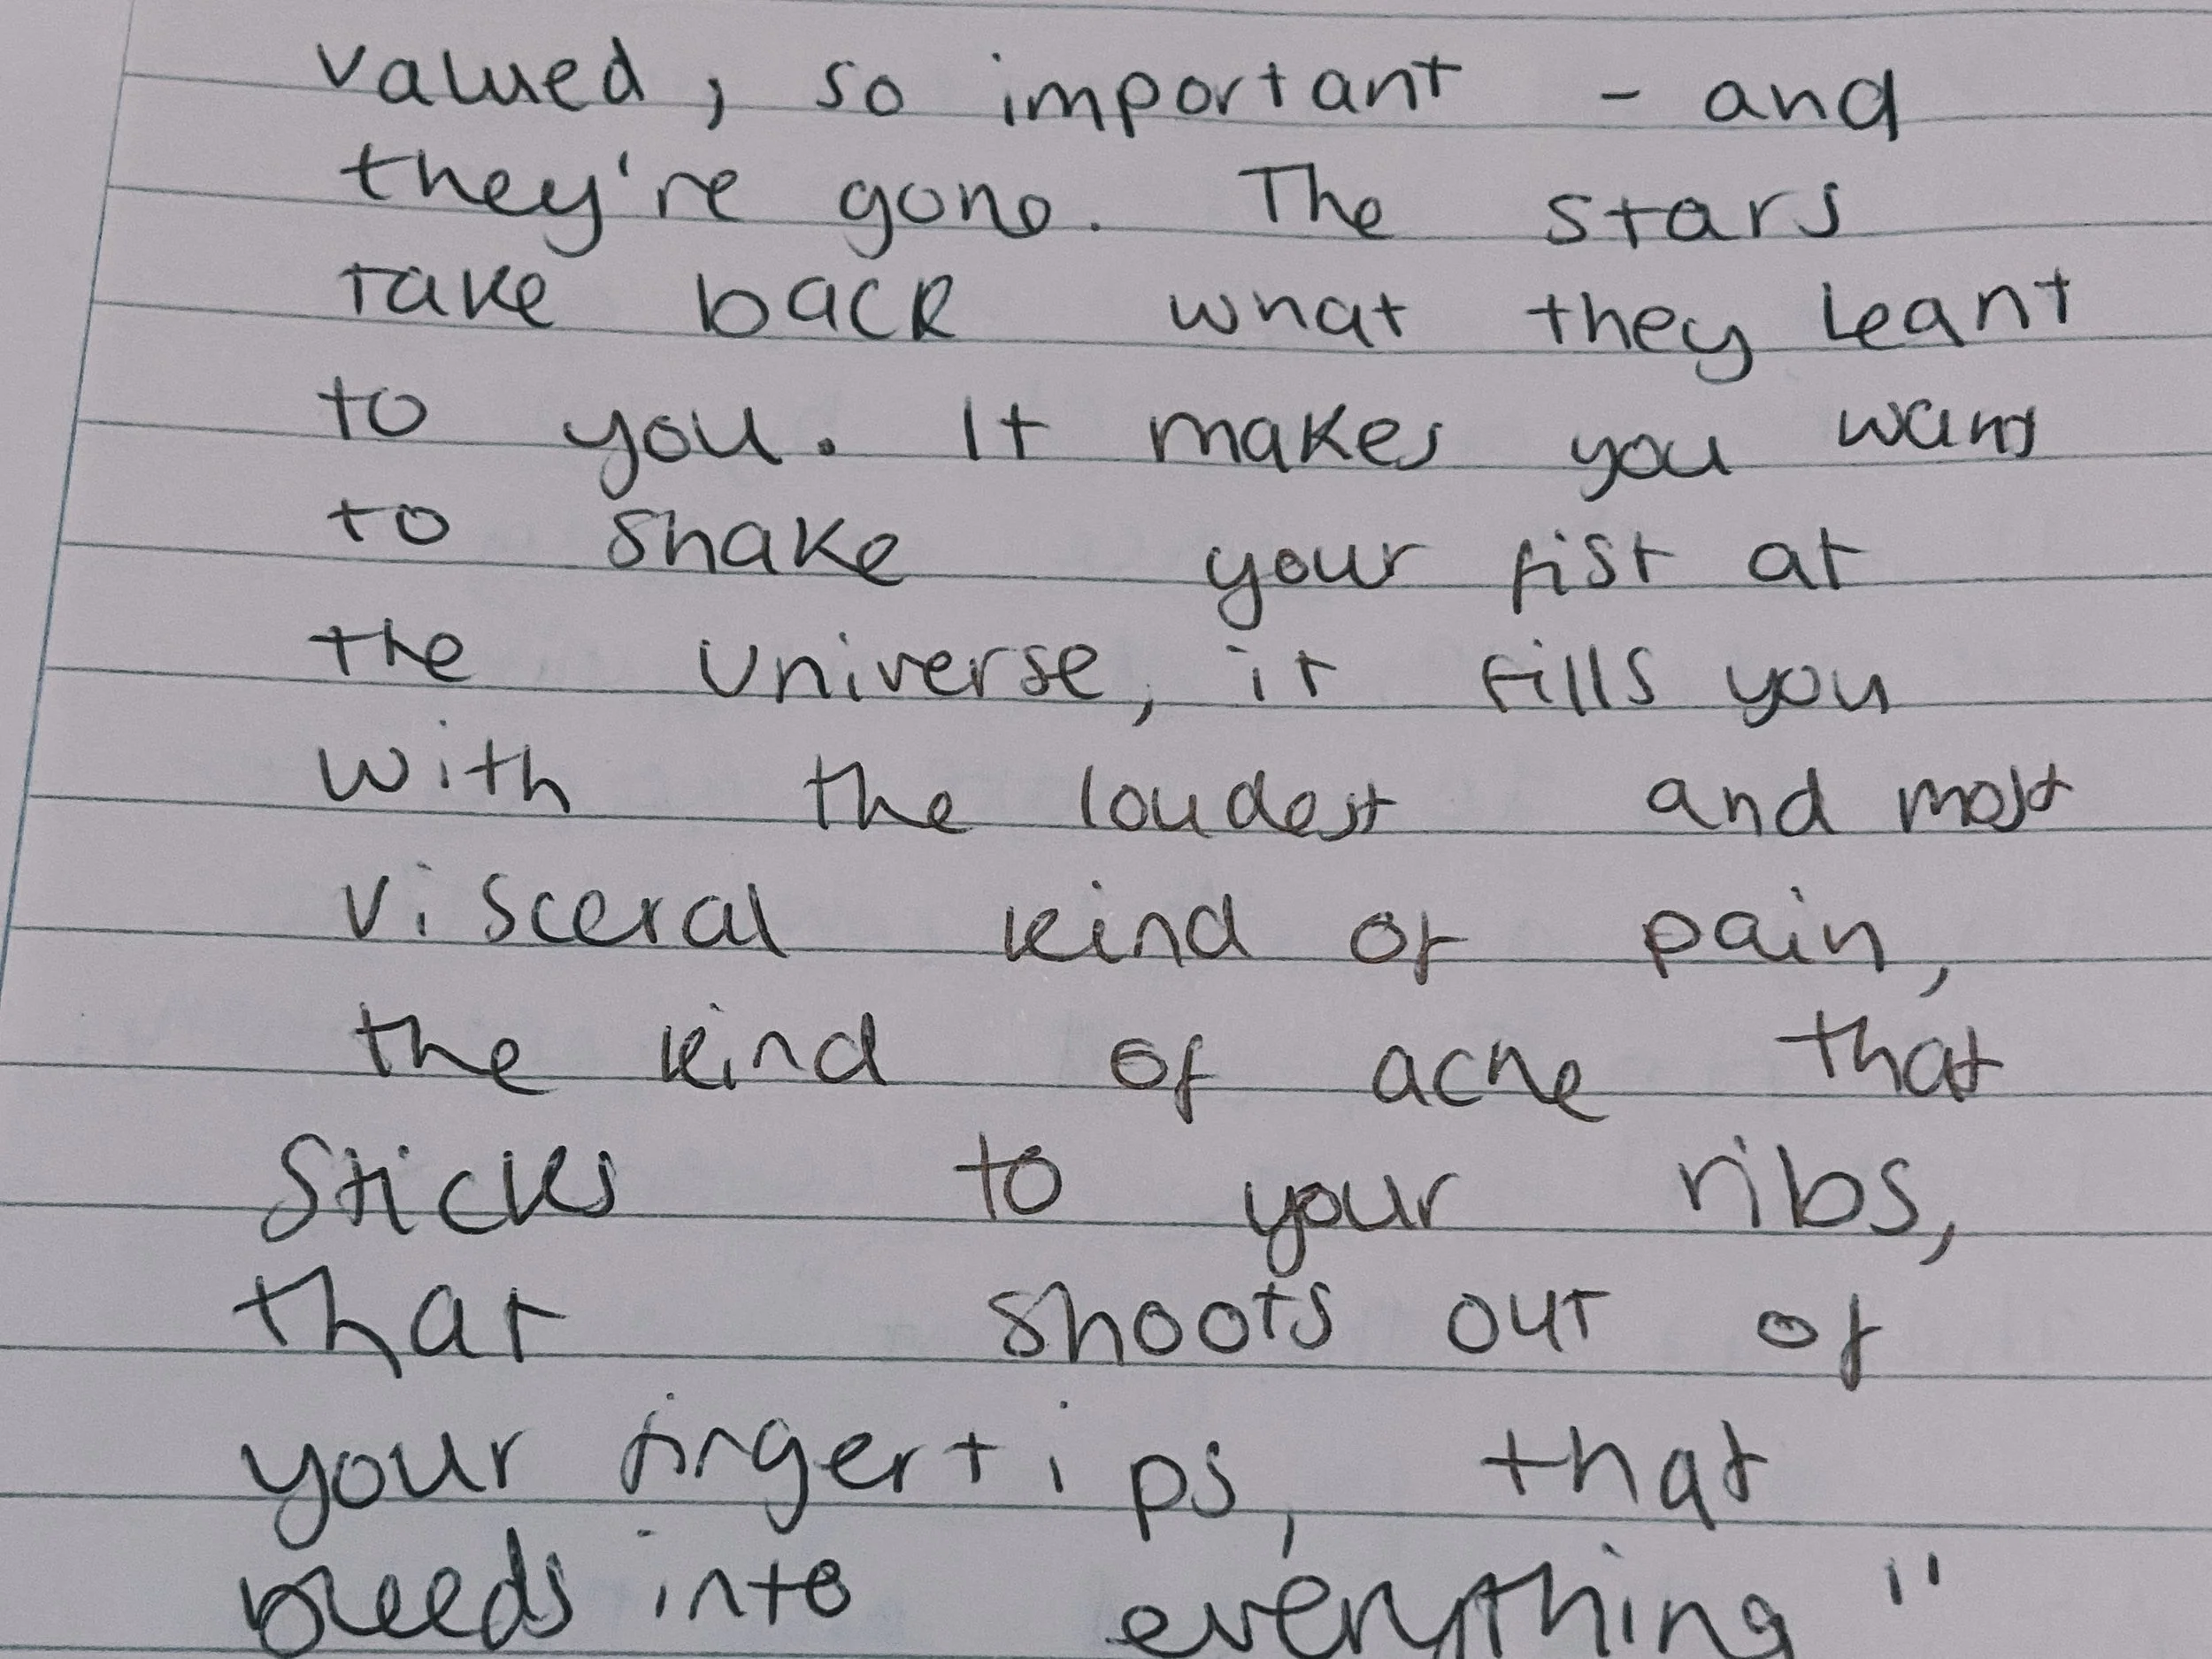 valued, so important - and
they're gone. The stars
take back what they leant
to you. It makes you want
to shake your fist at
the universe, it fills you
with the loudest and most
visceral kind of pain,
the kind of ache that
sticks to your ribs,
that shoots out of
your fingertips, that
bleeds into everything"